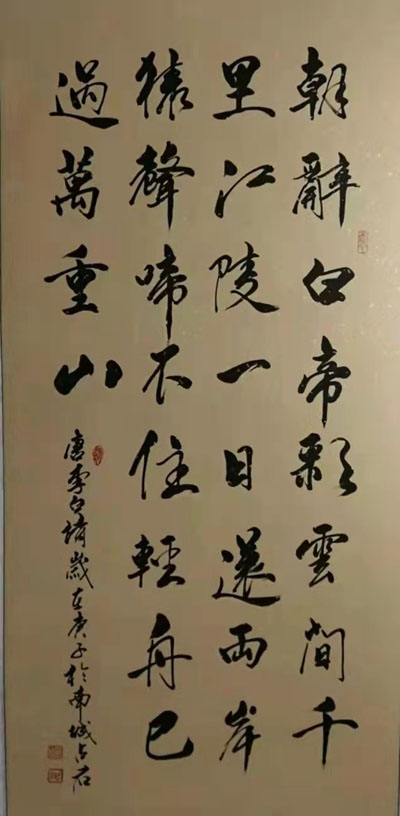 朝辭白帝彩雲間千
里江陵一日還兩岸
猿聲啼不住輕舟已
過萬重山
唐李白詩歲在庚子於南城占石